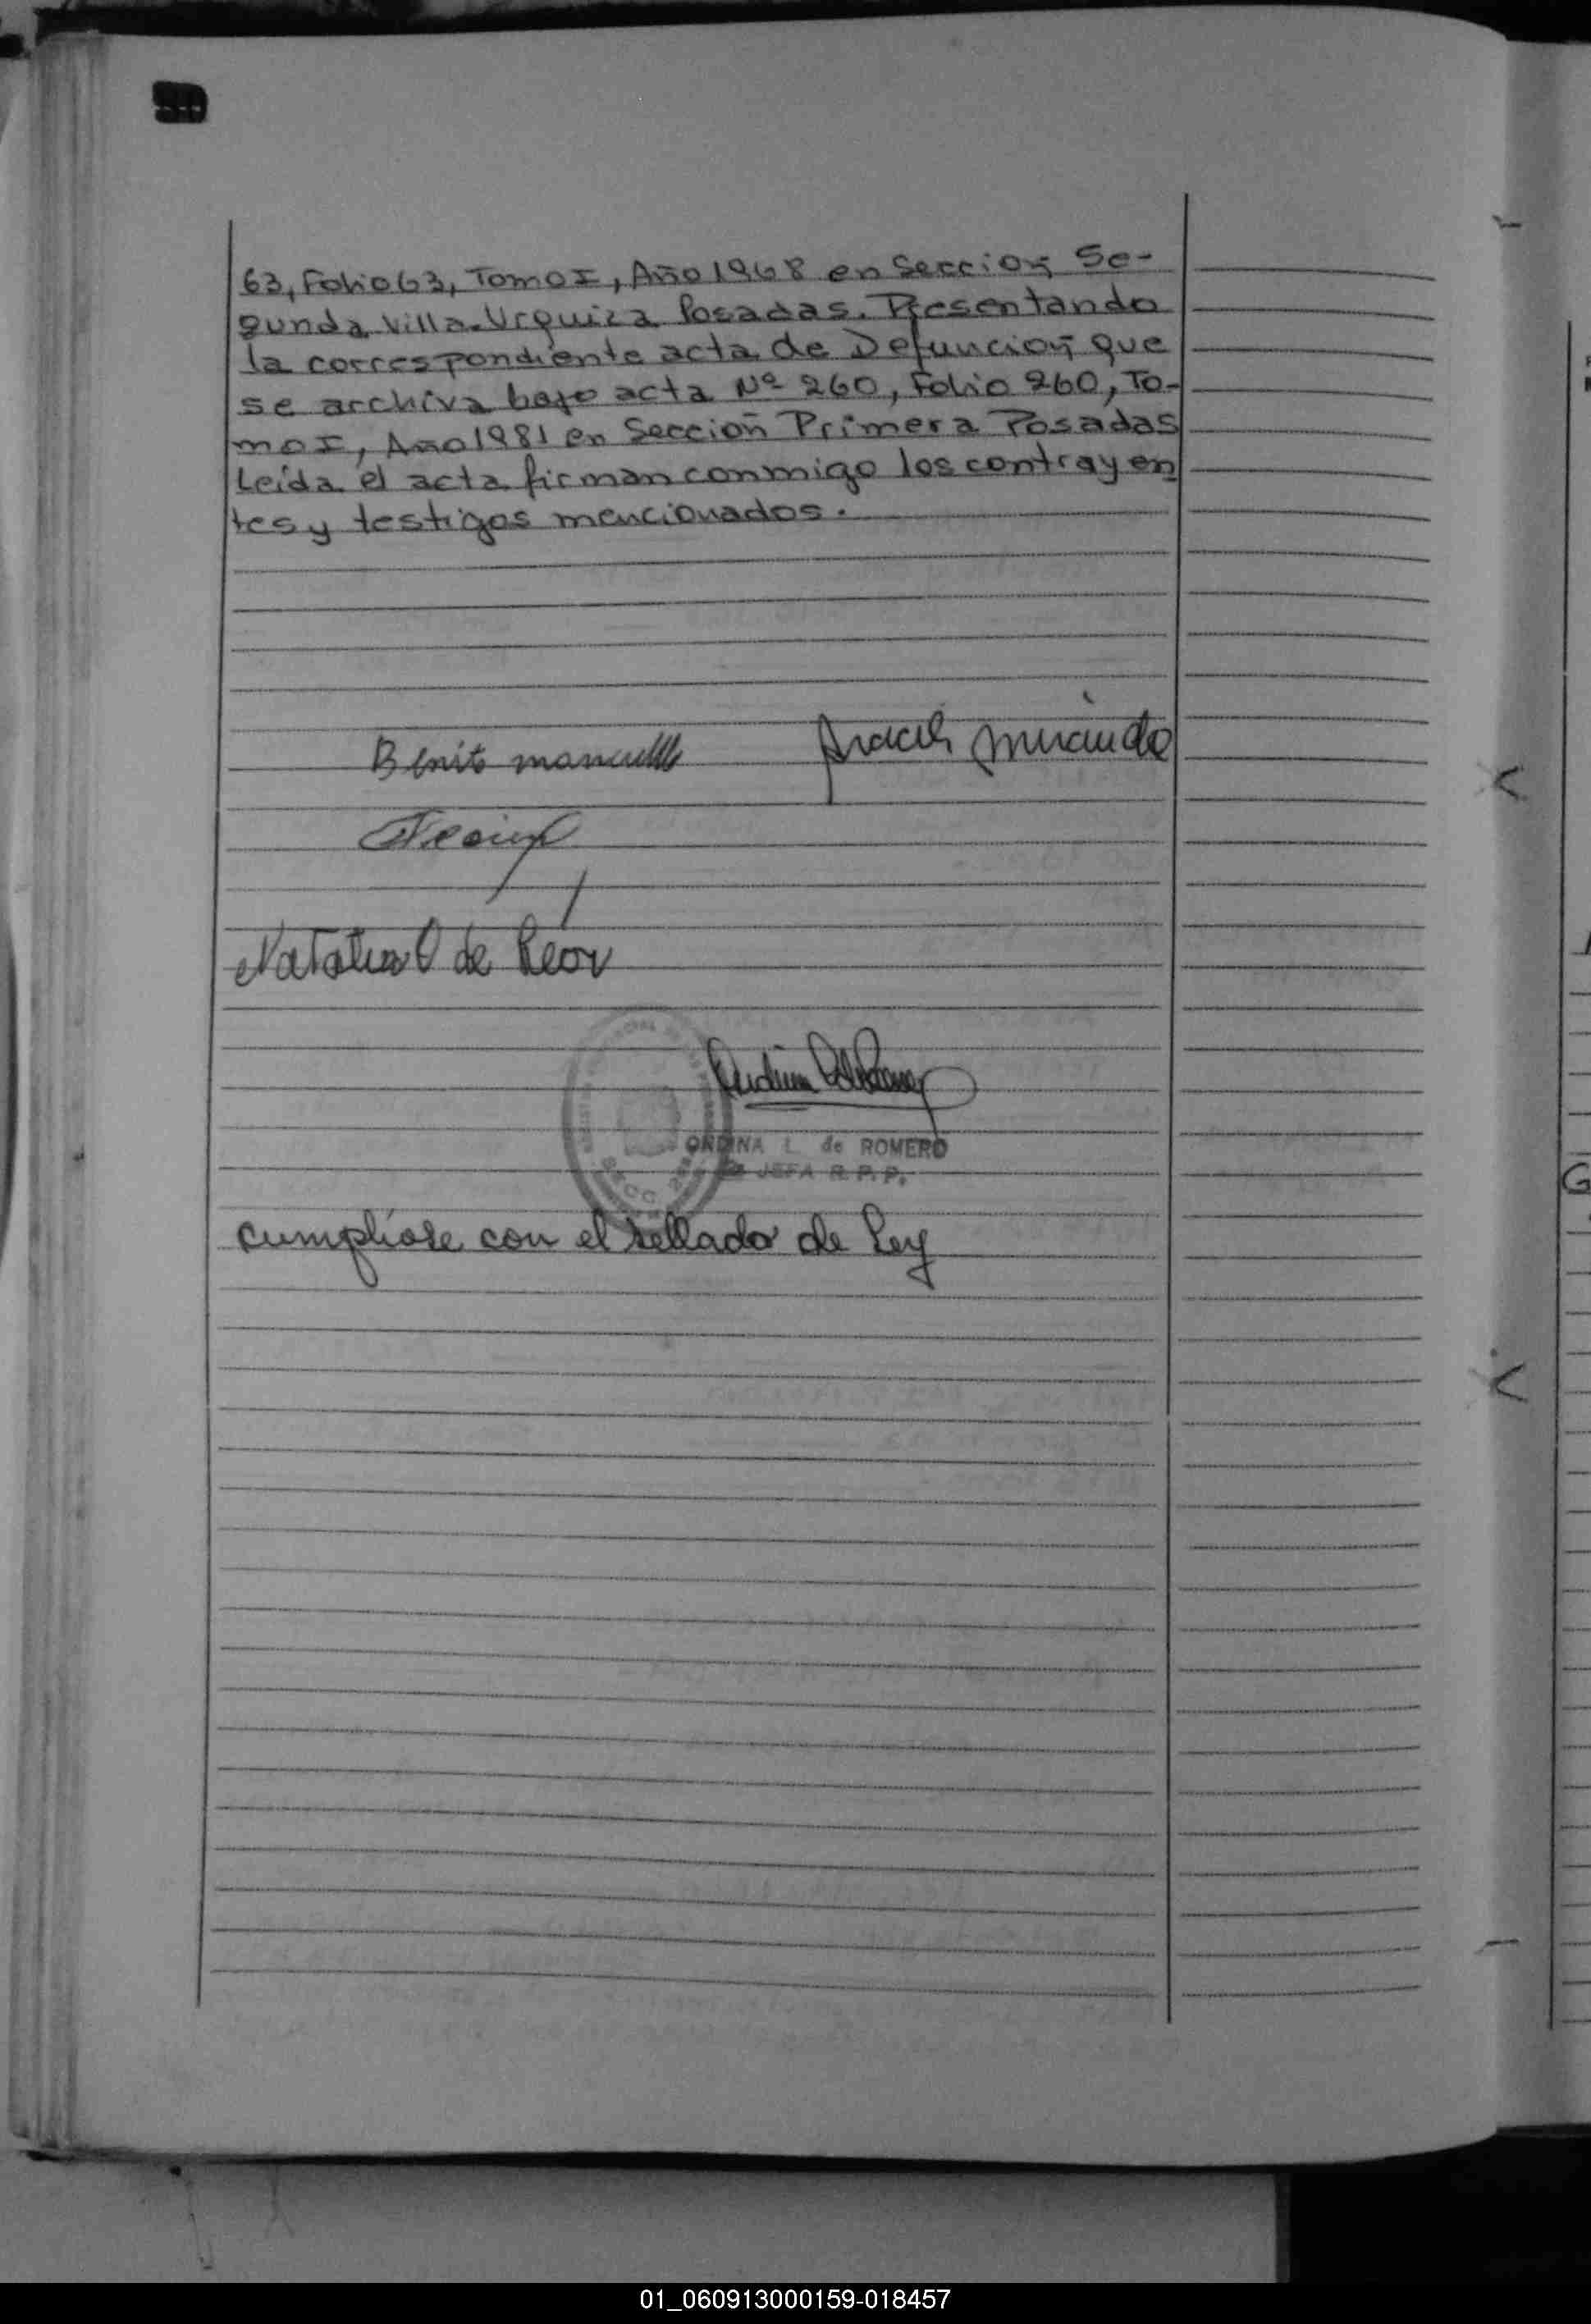 63, Folio 63, Tomo I, Año 1968 en Seccion Se-
gunda Villa Urquiza Posadas. Presentando
la correspondiente acta de Defuncion que
se archiva bajo acta Nº 260, Folio 260, To-
mo I, Año 1981 en Sección Primera Posadas
Leída el acta firman conmigo los contrayen
tes y testigos mencionados.
Benito
Araceli Miranda
Natalia O de Leon
ORDINA L. de ROMERO
JEFA R. P. P.
SECC.
cumplíose con el sellado de Ley
01_060913000159-018457